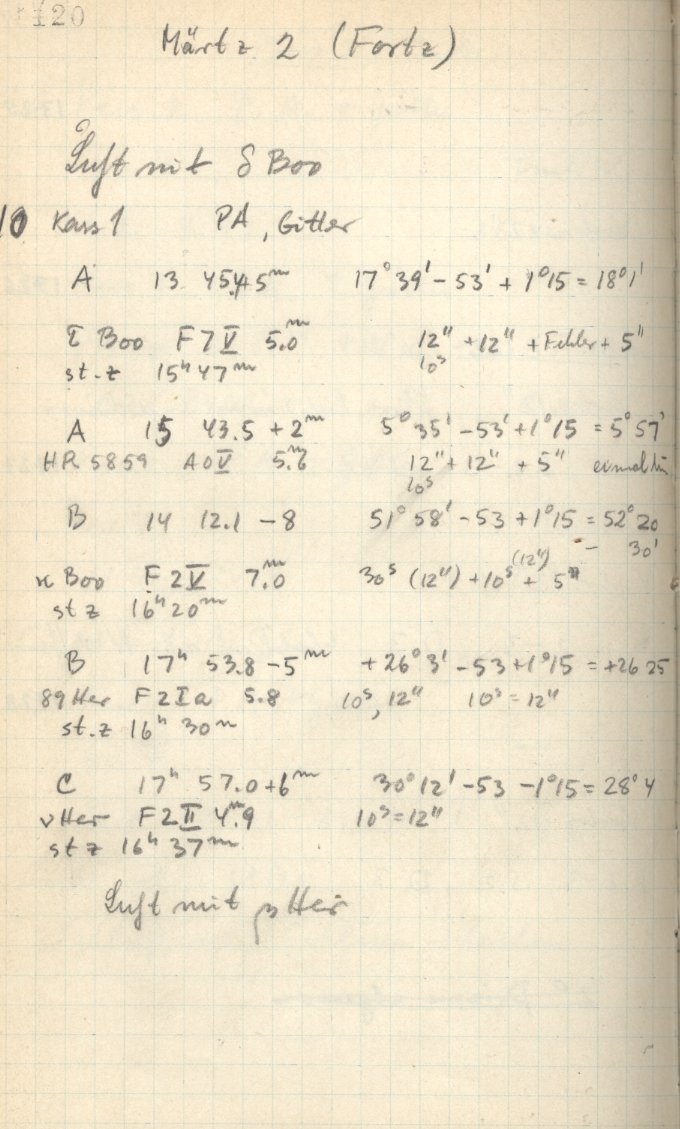 120
Märtz 2 (Fortz)
Luft mit δ Boo
10 Kass 1 PA, Gitter
A 13 45.4+5ᵐ 17°39' - 53' + 1°15 = 18°1'
τ Boo F7V 5.0ᵐ 12" + 12" + Fehler + 5"
10ˢ
st.z 15ʰ47ᵐ
A 15 43.5 + 2ᵐ 5°35' - 53' + 1°15 = 5°57'
HR 5859 A0V 5.6ᵐ 12" + 12" + 5" einmal
10ˢ
B 14 12.1 - 8 51°58' - 53 + 1°15 = 52°20
- 30'
κ Boo F2V 7.0ᵐ 30ˢ (12") + 10ˢ (12") + 5"
st z 16ʰ20ᵐ
B 17ʰ 53.8 - 5ᵐ +26°3' - 53 + 1°15 = +26 25
89 Her F2Ia 5.8 10ˢ, 12" 10ˢ = 12"
st.z 16ʰ 30ᵐ
C 17ʰ 57.0 + 6ᵐ 30°12' - 53 - 1°15 = 28°4
ν Her F2II 4.9ᵐ 10ˢ = 12"
st z 16ʰ 37ᵐ
Luft mit μ Her